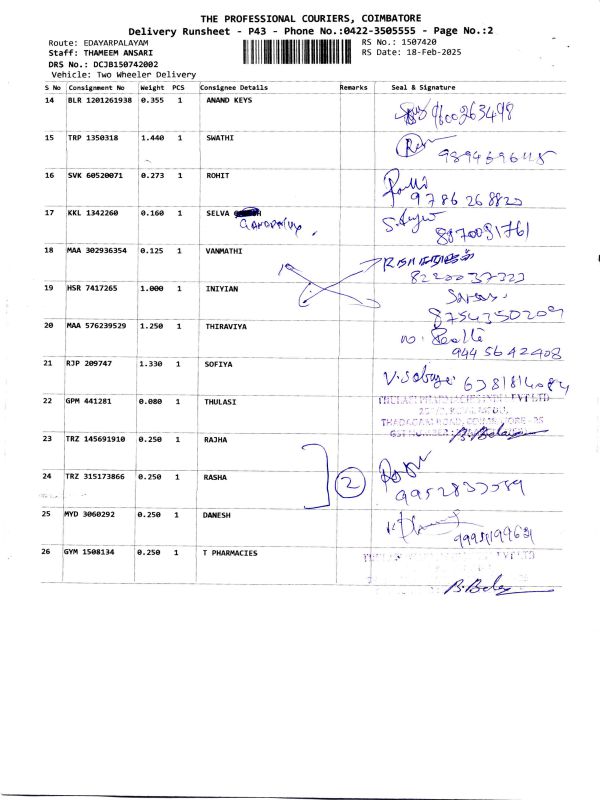 THE PROFESSIONAL COURIERS, COIMBATORE
Delivery Runsheet - P43 - Phone No.:0422-3505555 - Page No.:2
Route: EDAYARPALAYAM RS No.: 1507420
Staff: THAMEEM ANSARI RS Date: 18-Feb-2025
DRS No.: DCJB150742002
Vehicle: Two Wheeler Delivery
S No Consignment No Weight PCS Consignee Details Remarks Seal & Signature
14 BLR 1201261938 0.355 1 ANAND KEYS 9600263498
15 TRP 1350318 1.440 1 SWATHI
9894696445
16 SVK 60520071 0.273 1 ROHIT
9786268820
17 KKL 1342260 0.160 1 SELVA
8870091761
18 MAA 302936354 0.125 1 VANMATHI
8220037323
19 HSR 7417265 1.000 1 INIYIAN
8754350209
20 MAA 576239529 1.250 1 THIRAVIYA
9445642408
21 RJP 209747 1.330 1 SOFIYA
22 GPM 441281 0.080 1 THULASI
23 TRZ 145691910 0.250 1 RAJHA
24 TRZ 315173866 0.250 1 RASHA 2
25 MYD 3060292 0.250 1 DANESH
26 GYM 1508134 0.250 1 T PHARMACIES